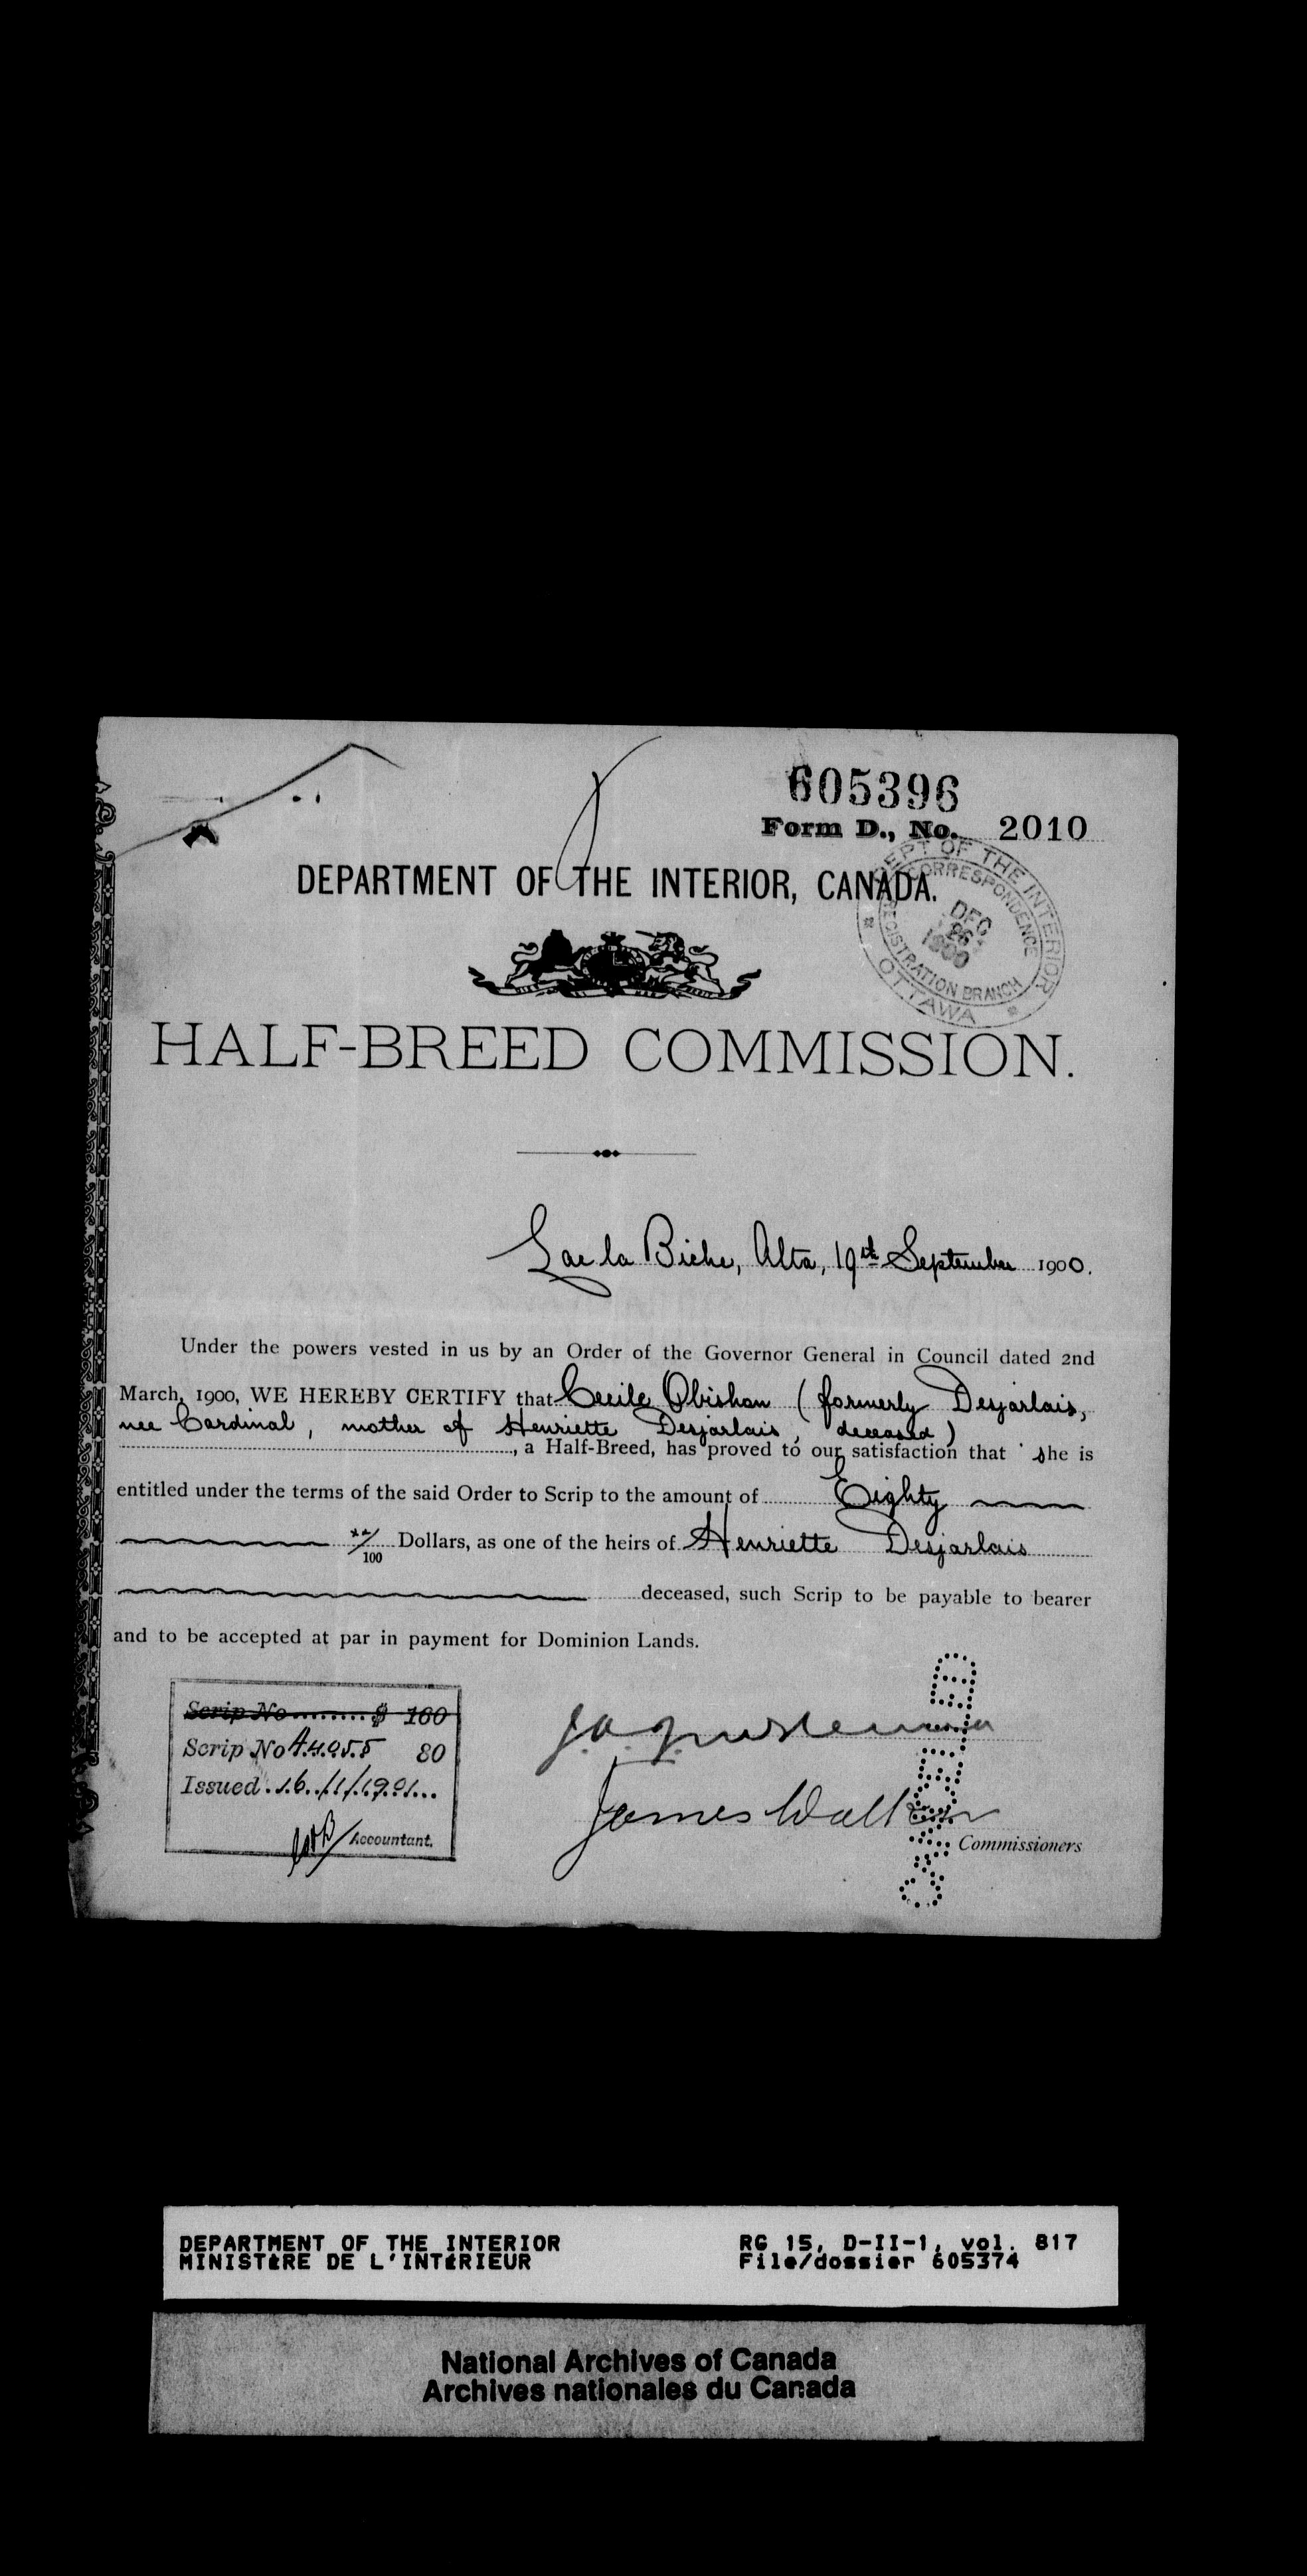 605396
Form D., No. 2010
DEPT OF THE INTERIOR
CORRESPONDENCE
DEC
26
1900
REGISTRATION BRANCH
OTTAWA
DEPARTMENT OF THE INTERIOR, CANADA.
HALF-BREED COMMISSION.
Lac la Biche, Alta, 19th September 1900.
Under the powers vested in us by an Order of the Governor General in Council dated 2nd
March, 1900, WE HEREBY CERTIFY that Cecile Obishan (formerly Desjarlais,
nee Cardinal, mother of Henriette Desjarlais, deceased)
, a Half-Breed, has proved to our satisfaction that she is
entitled under the terms of the said Order to Scrip to the amount of Eighty
xx/100 Dollars, as one of the heirs of Henriette Desjarlais
deceased, such Scrip to be payable to bearer
and to be accepted at par in payment for Dominion Lands.
Scrip No........ $ 160
Scrip No A.4.0.5.5 80
Issued .16./1/.1901...
Accountant.
James Walker
Commissioners
DEPARTMENT OF THE INTERIOR
MINISTÈRE DE L'INTÉRIEUR
RG 15, D-II-1, vol. 817
File/dossier 605374
National Archives of Canada
Archives nationales du Canada